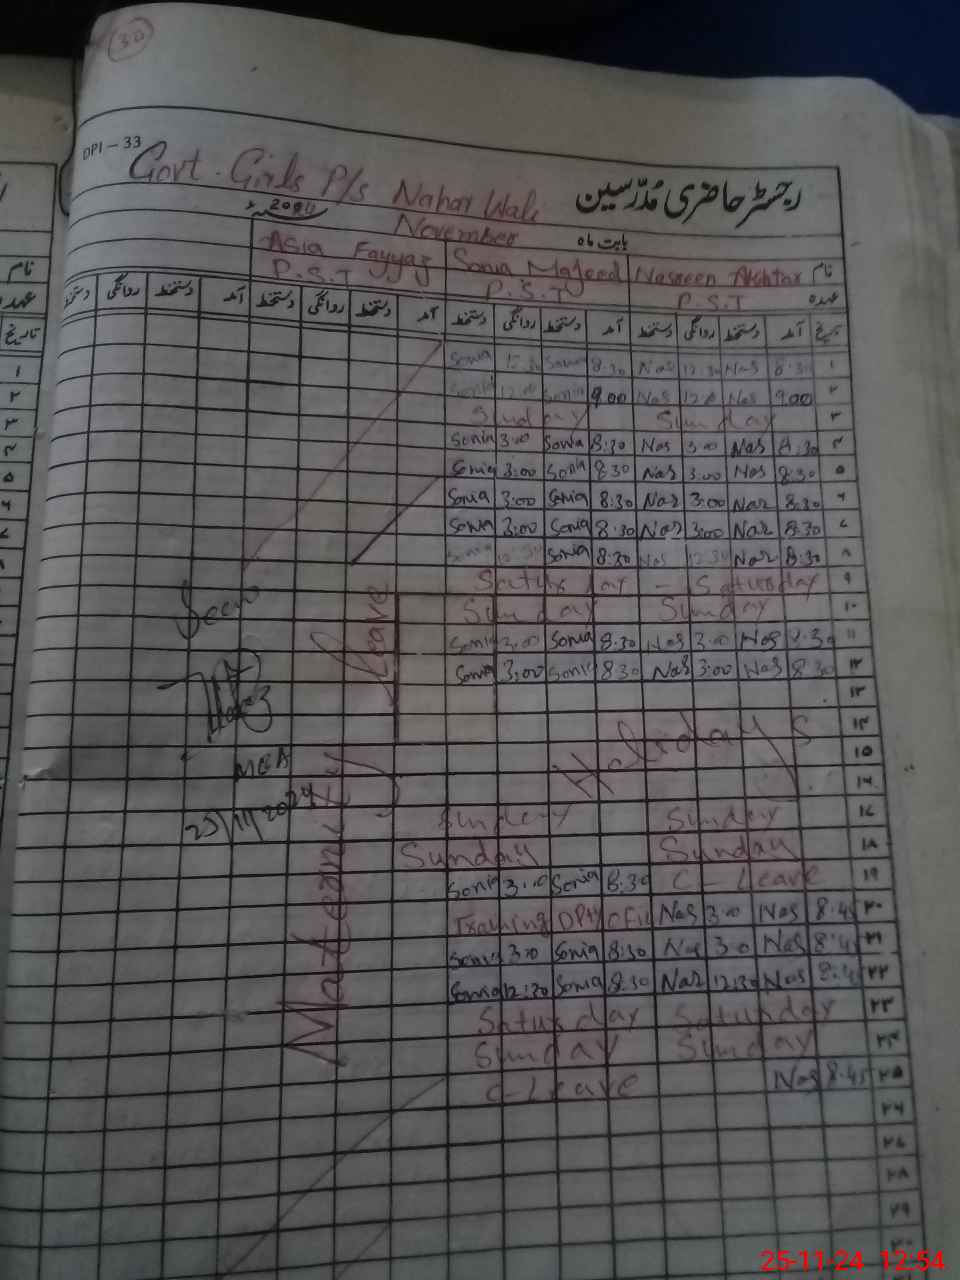 30
DPI - 33
Govt. Girls P/s Nahar Wali رجسٹر حاضری مُدرّسین
November بابت ماہ
Asia Fayyaz Sonia Majeed Nasreen Akhtar نام
P.S.T P.S.T P.S.T عہدہ
تاریخ آمد دستخط روانگی دستخط آمد دستخط روانگی دستخط آمد دستخط روانگی دستخط آمد دستخط روانگی دستخط
Sonia 12:30 Sonia 8:30 Nas 12:30 Nas 8:30 ۱
Sonia Sonia 9:00 Nas Nas 9:00 ۲
Sunday Sunday ۳
Sonia 3:00 Sonia 8:30 Nas 3:00 Nas 8:30 ۴
Sonia 3:00 Sonia 8:30 Nas 3:00 Nas 8:30 ۵
Sonia 3:00 Sonia 8:30 Nas 3:00 Nas 8:30 ۶
Sonia 3:00 Sonia 8:30 Nas 3:00 Nas 8:30 ۷
Sonia 12:30 Sonia 8:30 Nas 12:30 Nas 8:30 ۸
Saturday - Saturday ۹
Sunday Sunday ۱۰
Sonia 3:00 Sonia 8:30 Nas 3:00 Nas 8:30 ۱۱
Sonia 3:00 Sonia 8:30 Nas 3:00 Nas 8:30 ۱۲
۱۳
Holidays ۱۴
۱۵
۱۶
Sunday Sunday ۱۷
Sunday Sunday ۱۸
Sonia 3:00 Sonia 8:30 C-Leave ۱۹
Training Nas 3:00 Nas 8:45 ۲۰
Sonia 3:0 Sonia 8:30 Nas 3:0 Nas 8:45 ۲۱
Sonia 12:30 Sonia 8:30 Nas 12:30 Nas 8:45 ۲۲
Saturday Saturday ۲۳
Sunday Sunday ۲۴
C-Leave Nas 8:45 ۲۵
۲۶
۲۷
۲۸
۲۹
۳۰
leave
Seen
MEA
25/11/2024
نام
عہدہ
تاریخ
۱
۲
۳
۴
۵
۶
۷
25-11-24 12:54